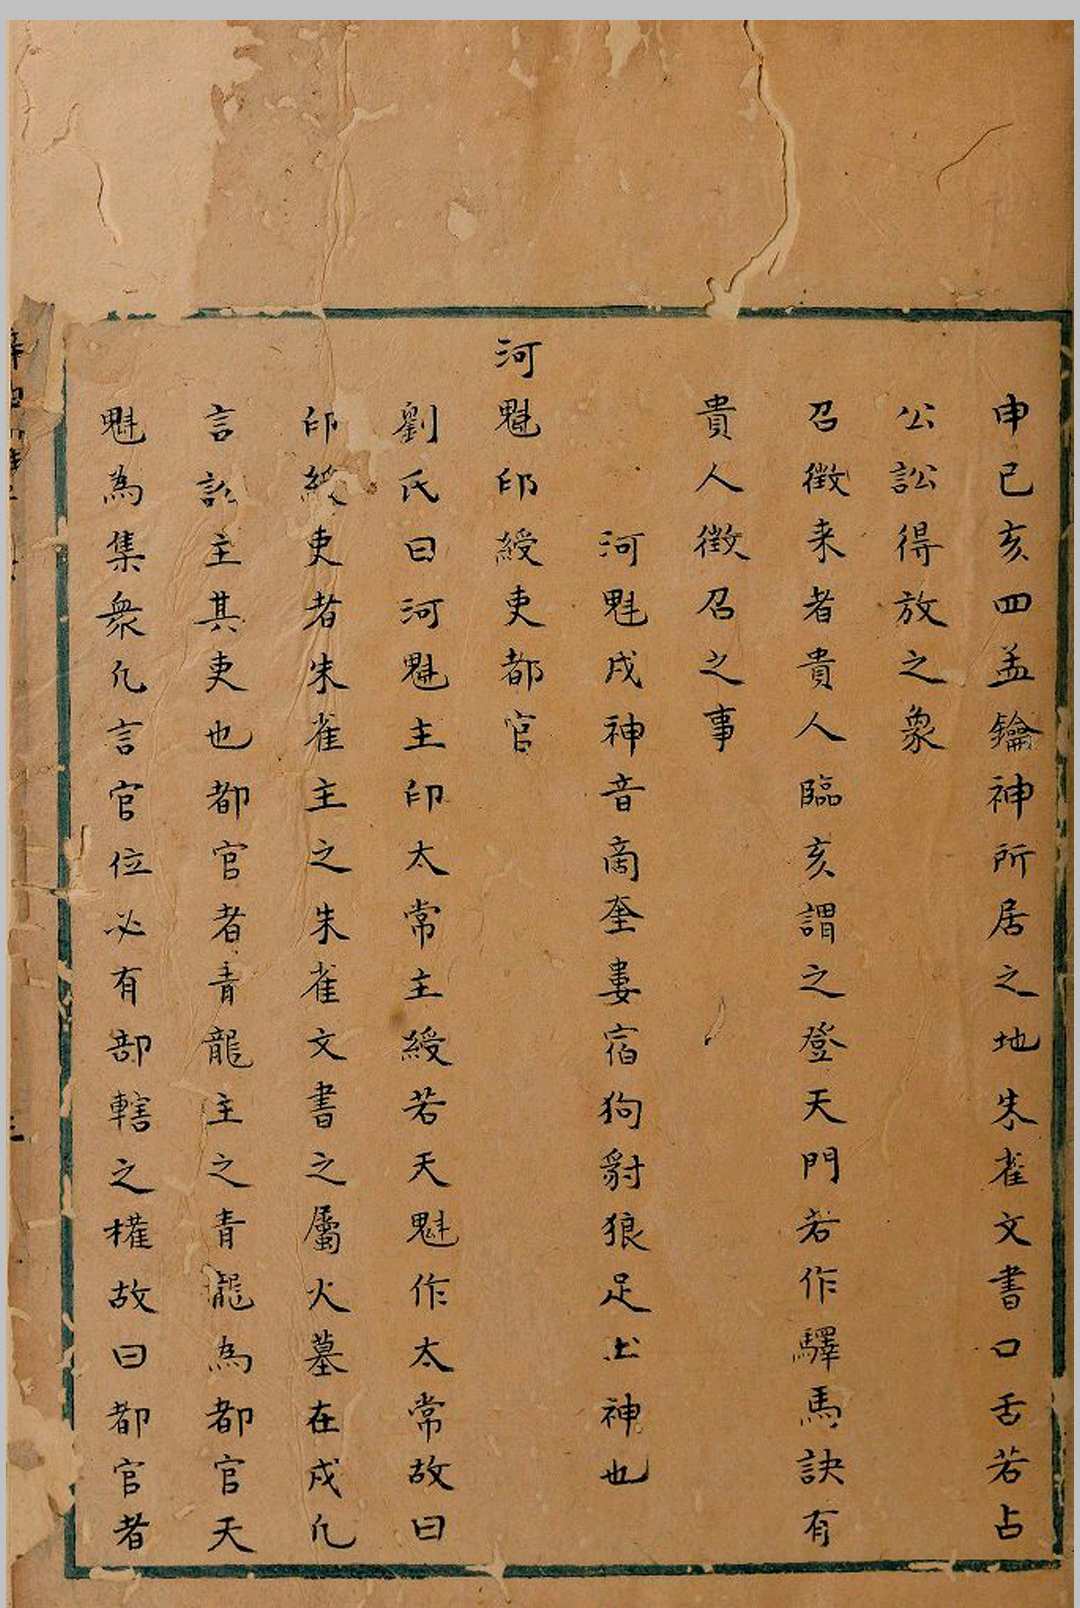 申巳亥四孟鑰神所居之地朱雀文書口舌若占
公訟得放之象
召徴来者貴人臨亥謂之登天門若作驛馬訣有
貴人徴召之事
河魁戌神音商奎婁宿狗豺狼足土神也
河魁印綬吏都官
劉氏曰河魁主印太常主綬若天魁作太常故曰
印綬吏者朱雀主之朱雀文書之屬火墓在戌凡
言訟主其吏也都官者青龍主之青龍為都官天
魁為集衆凡言官位必有部轄之權故曰都官者